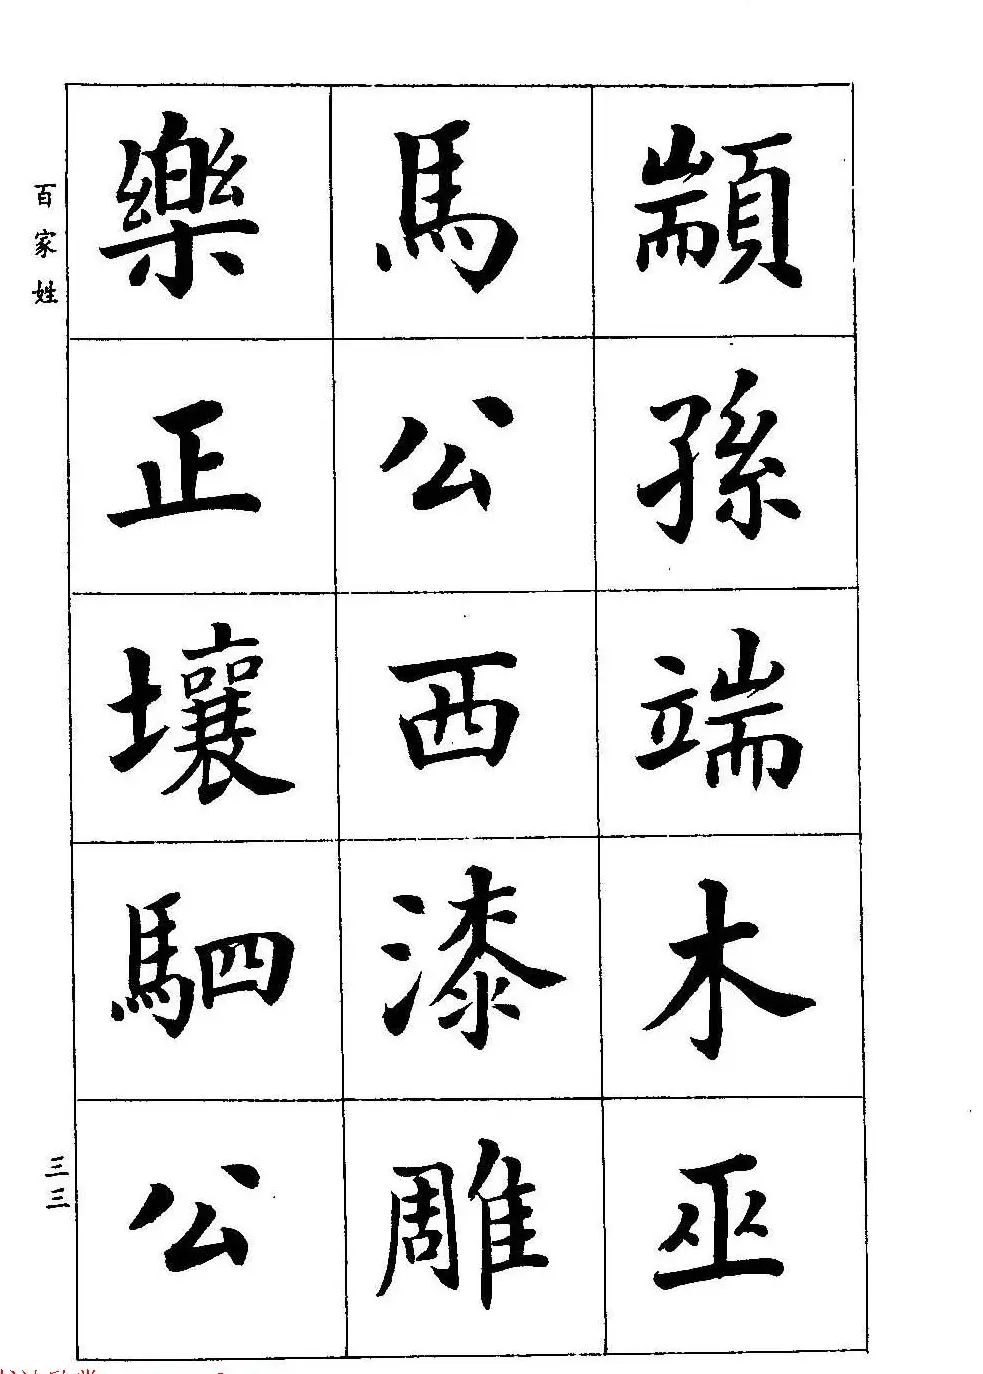 顓孫端木巫
馬公西漆雕
樂正壤駟公
百家姓
三三